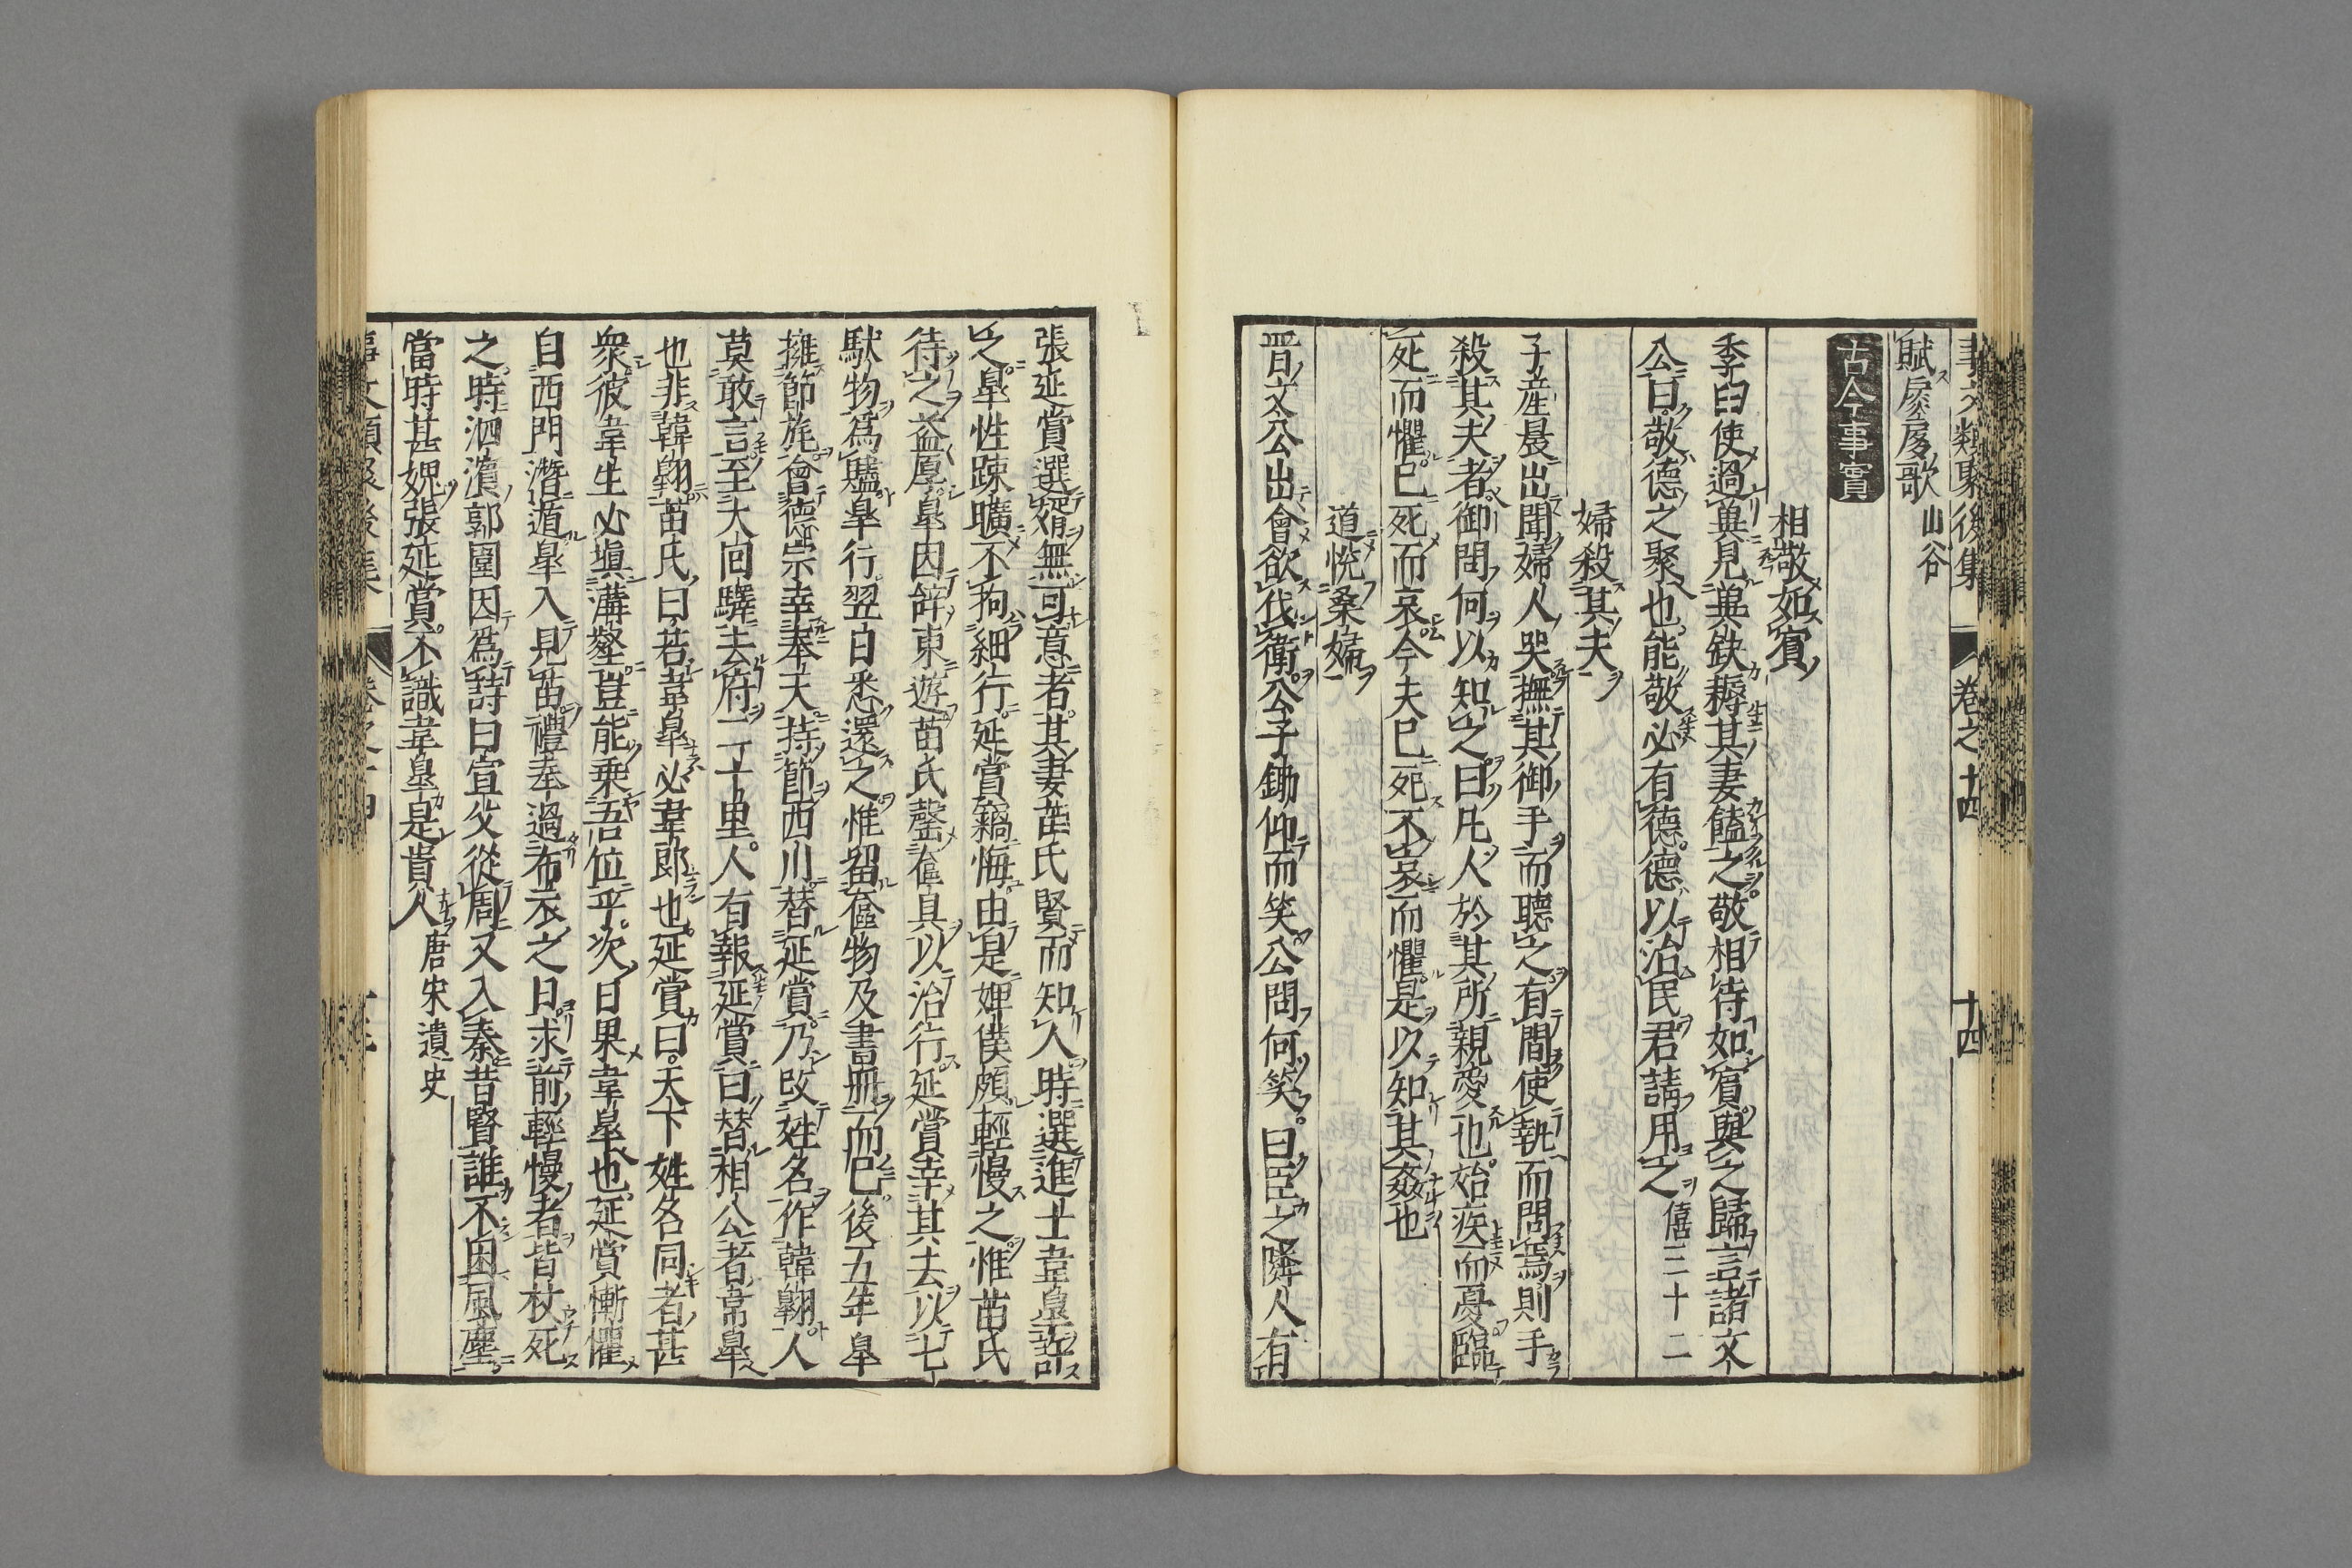 事文類聚後集 卷之十四 十四
賦扊扅歌 山谷
古今事實
相敬如賓
季臼使過兾見兾缺耨其妻饁之敬相待如賓與之歸言諸文
公曰敬德之聚也能敬必有德德以治民君請用之 僖三十二
婦殺其夫
子產晨出聞婦人哭撫其御手而聽之有間使執而問焉則手
殺其夫者御問何以知之曰凡人於其所親愛也始疾而憂臨
死而懼已死而哀今夫已死不哀而懼是以知其姦也
道悅桑婦
晋文公出會欲伐衛公子鋤仰而笑公問何笑曰臣之隣人有
張延賞選壻無可意者其妻苗氏賢而知人時選進士韋臯許
之臯性踈曠不拘細行延賞竊悔由是婢僕頗輕慢之惟苗氏
待之益厚臯因辝東遊苗氏罄奩具以治行延賞幸其去以七
馱物爲贐臯行翌日悉還之惟留奩物及書册而已後五年臯
擁節旄會德宗幸奉天持節西川替延賞乃改姓名作韓翺人
莫敢言至大回驛去府三十里人有報延賞曰替相公者韋臯
也非韓翺苗氏曰若韋臯必韋郎也延賞曰天下姓名同者甚
衆彼韋生必塡溝壑豈能乗吾位乎次日果韋臯也延賞慚懼
自西門潛遁臯入見苗禮奉過布衣之日求前輕慢者皆杖死
之時泗濵郭圍因爲詩曰宣父從周又入秦昔賢誰不困風塵
當時甚媿張延賞不識韋臯是貴人 唐宋遺史